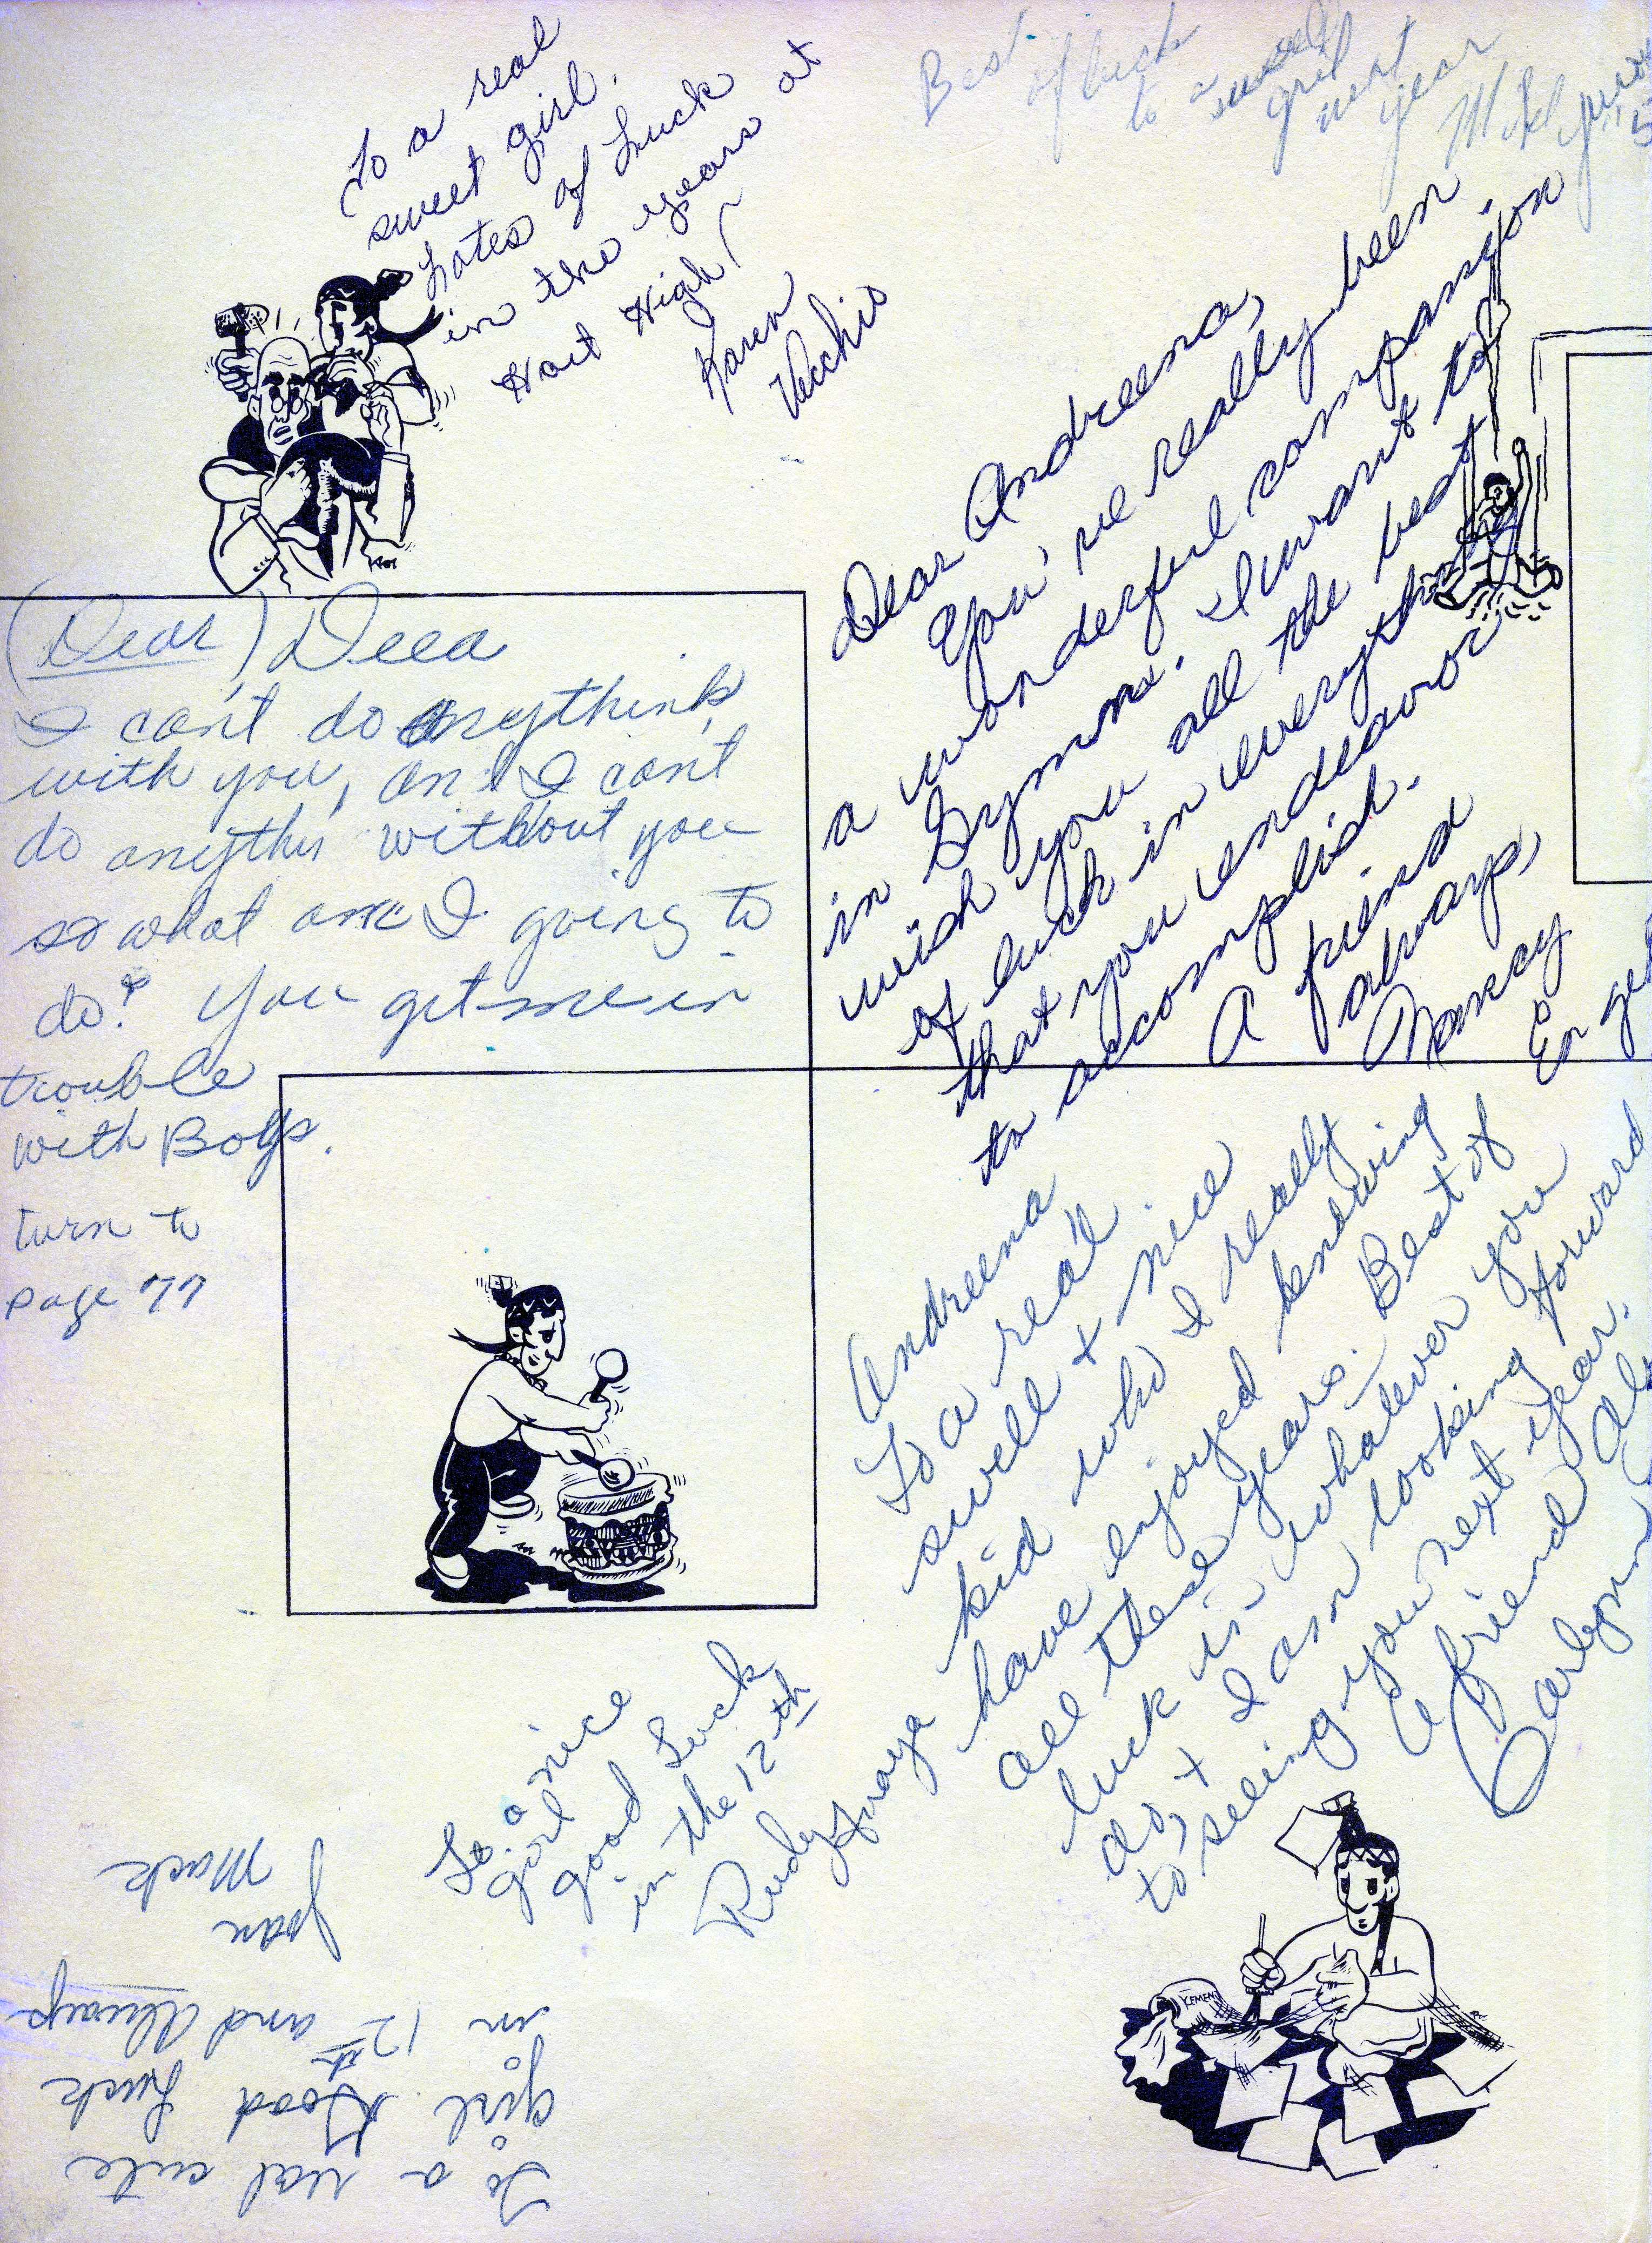 To a real
sweet girl.
Lotes of Luck
in the years at
Hart High
Karen
Vecchio
Best
of luck
to a sweet
girl
next
year
Dear Andreena,
You've really been
a wonderful companion
in Gymn. I want to
wish you all the best
of luck in everything
that you endeavor
to accomplish.
A friend
always,
Nancy
(Dear) Deea
I can't do anythink
with you, and I can't
do anythis without you
so what am I going to
do? You get me in
trouble
with Boys.
turn to
page 77
Andreena
To a real
swell + nice
kid who I really
have enjoyed knowing
all these years. Best of
luck in whatever you
do, + I am looking forward
to seeing you next year.
A friend
Carlynn
To a nice
girl
good Luck
in the 12th
Rudy Anaya
To a real cute
girl Good Luck
in 12th and Always
Joan
Mack
KEMENT